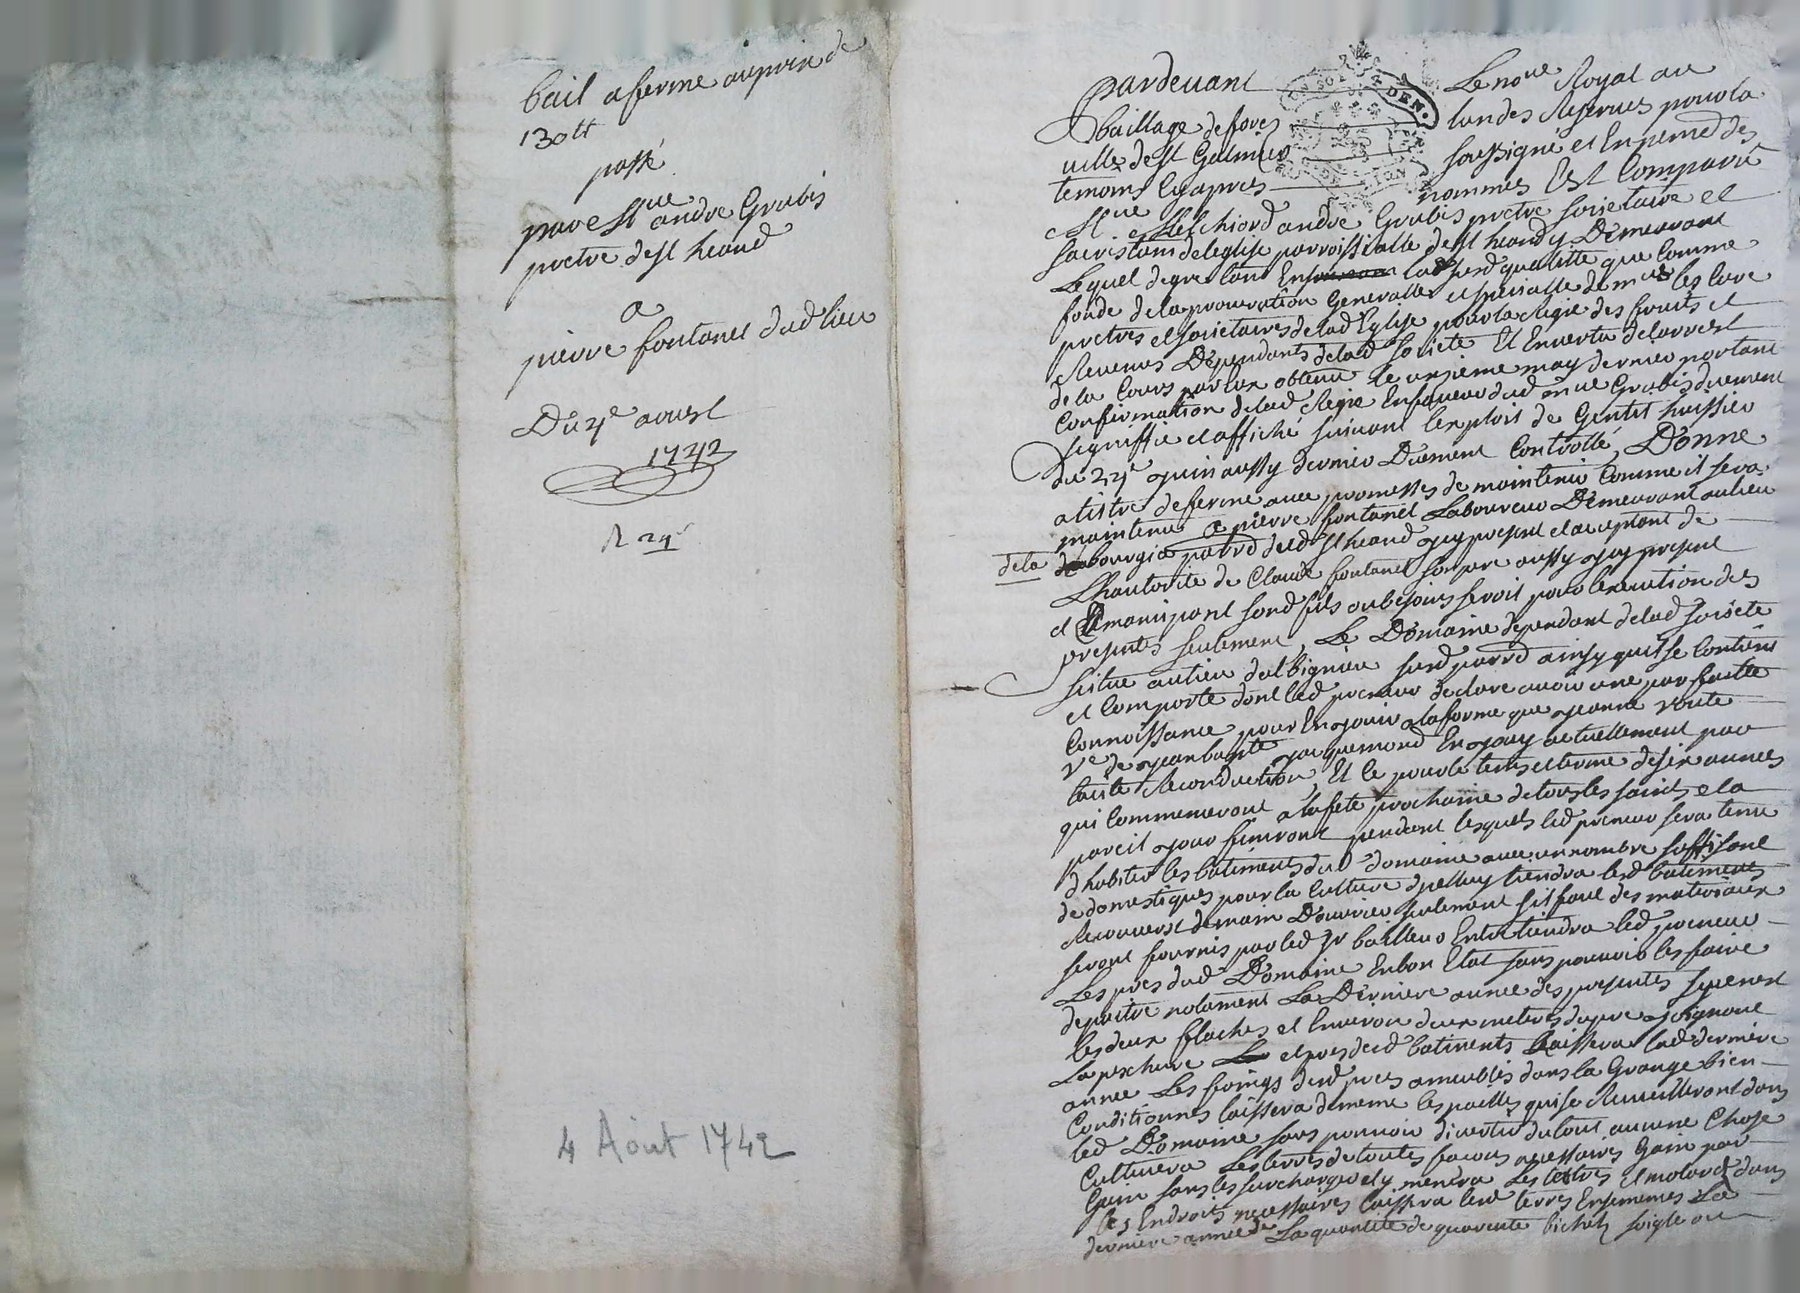 bail a ferme au prix de
130 tt
passé
par e Mre andre Grubis
pretre de st heand
a
pierre fontanel dud lieu
Du 4e aoust
1742
R 24
4 Août 1742
Pardevant Le nore Royal au
bailliage de forez lun des Reserves pour la
ville de st Galmier soussigné et En pnce des
temoins Cy apres nommes Est Comparu
Mre Melchiord andre Grubis pretre societaire et
sacristain de leglise parroissialle de st heand y Demeurant
Lequel de gre tant En lad susd qualitte que Comme
fonde de la procuration Generalle et specialle de mrs les Cure
pretres et societaires de lad Eglise pour la Regie des fruits et
Revenus Dependants de lad societe Et En vertu de larrest
de la Cour par luy obtenu le onzieme may dernier portant
Confirmation de lad Regie En faveur dud mre Grubis duement
signiffié et affiché suivant lexploit de Gentet huissier
du 24e juin aussy dernier Duement Controllé, Donne
a titre de ferme avec promesses de maintenir Comme il sera
maintenu a pierre fontanel Laboureur Demeurant au lieu
de la bourgia parrd dud st heand icy present et acceptant de
Lhautorite de Claude fontanel son pere aussy icy present
et Emancipant sond fils ou besoins seroit pour lexecution des
presentes seulement, Le Domaine dependant de lad societe
scitue au lieu dalbigneu susd parrd ainsy quil se Contient
et Comporte dont led preneur declare avoir une parfaitte
Connoissance pour En jouir a la forme que jeanne
ve de jean baptte jacquemond En jouy actuellement par
tacite Reconduction, Et Ce pour le tems et terme de six annees
qui Commenceront a la fete prochaine de tous les saints et a
pareil jour finiront pendant lesquels led preneur sera tenu
dhabiter les batiments dud domaine avec un nombre suffisant
de domestiques pour la Culture dicelluy tiendra lesd batiments
Recouverst de main Douvrier seulement sil faut des materiaux
seront fournis par led sr bailleur Entretiendra led preneur
Les pres dud Domaine En bon Etat sans pouvoir les faire
depaitre notament La Derniere annee des presentes
les deux flaches et Environ deux metres de pre joignant
La pescherie et pres desd batiments Laissera lad derniere
annee Les foings desd pres ameublés dans la Grange bien
Conditionnes laissera de meme les pailles qui se Recueilleront dans
led Domaine sans pouvoir divertir du tout aucune Chose
Cultivera Les terres de toutes facons necessaires Gain par
Gain sans les surcharger et y menera Les tertres et molards dans
les Endroits necessaires laissera lesd terres Ensemences La
derniere annee de La quantité de quarente bichets soigle ou